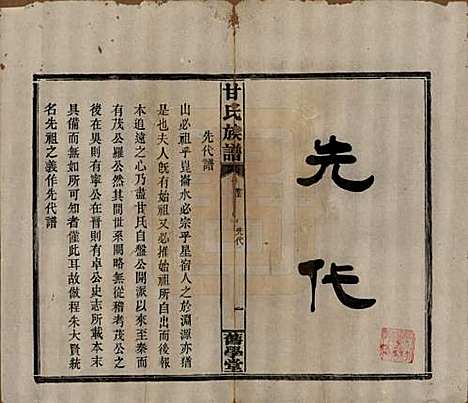 先代
甘氏族譜
卷首
先代
一
舊學堂
先代譜
山必祖乎崑崙水必宗乎星宿人之於淵源亦猶
是也夫人旣有始祖又必推始祖所自出而後報
本追遠之心乃盡甘氏自盤公開派以來至秦而
有茂公羅公然其間世系闕略無從稽考茂公之
後在吳則有寧公在晉則有卓公史志所載本末
具備而無如所可知者僅此耳故做程朱大賢統
名先祖之義作先代譜